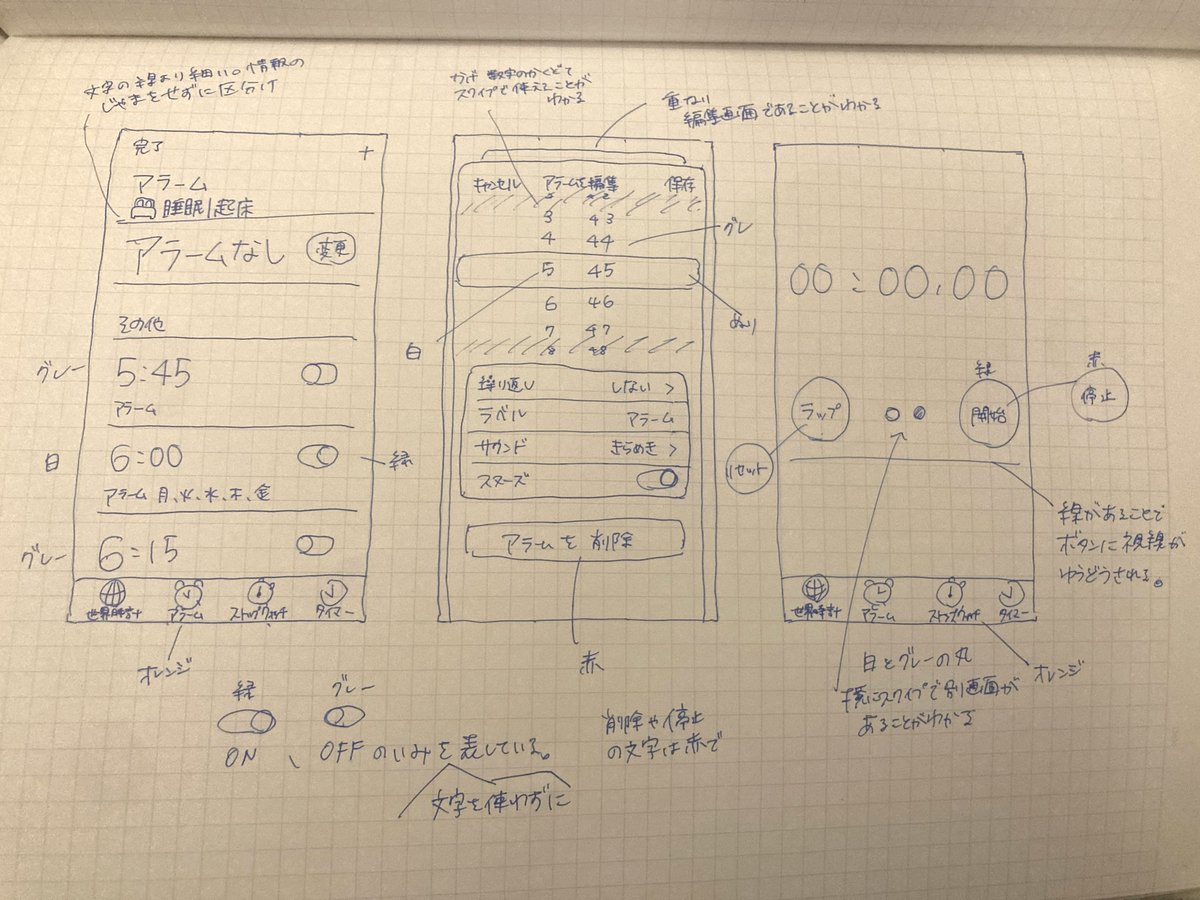 文字の線より細い。情報の
じゃませずに区分け
完了
+
アラーム
睡眠|起床
アラームなし
変更
その他
グレー
5:45
アラーム
白
6:00
緑
アラーム 月、火、水、木、金
グレー
6:15
世界時計
アラーム
ストップウォッチ
タイマー
オレンジ
緑
グレー
ON、OFFのいみを表している。
文字を使わずに
数字のかくどで
スワイプで使えることが
わかる
重なり
編集画面であることがわかる
キャンセル
アラームを編集
保存
3 43
4 44
グレー
5 45
白
ぬり
6 46
7 47
8 48
繰り返し
しない >
ラベル
アラーム
サウンド
きらめき >
スヌーズ
アラームを削除
赤
削除や停止
の文字は赤で
00:00.00
ラップ
リセット
緑
開始
赤
停止
線があることで
ボタンに視線が
ゆうどうされる。
世界時計
アラーム
ストップウォッチ
タイマー
オレンジ
白とグレーの丸
横にスワイプで別画面が
あることがわかる